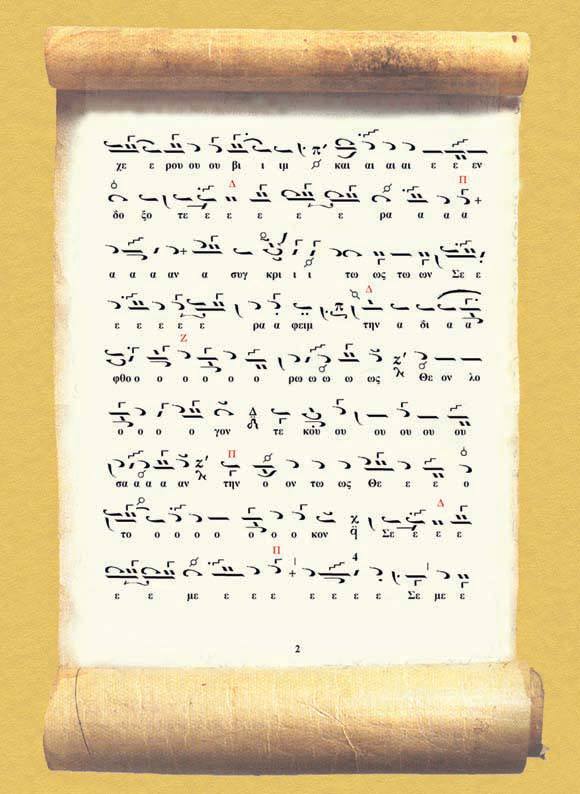 χε ε ρου ου ου βι ι ιμ και αι αι αι ε ε εν
δο ξο τε ε ε ε ε ε ρα α α α
α α α αν α συγ κρι ι ι τω ως τω ων Σε ε
ε ε ε ε ε ρα α φειμ την α δι α α
φθο ο ο ο ο ο ο ρω ω ω ω ως Θε ον λο
ο ο ο ο γον τε κου ου ου ου ου ου
σα α α α αν την ο ον τω ως Θε ε ε ο
το ο ο ο ο ο ο ο κον Σε ε ε ε
ε ε με ε ε ε ε ε ε ε Σε με ε
2